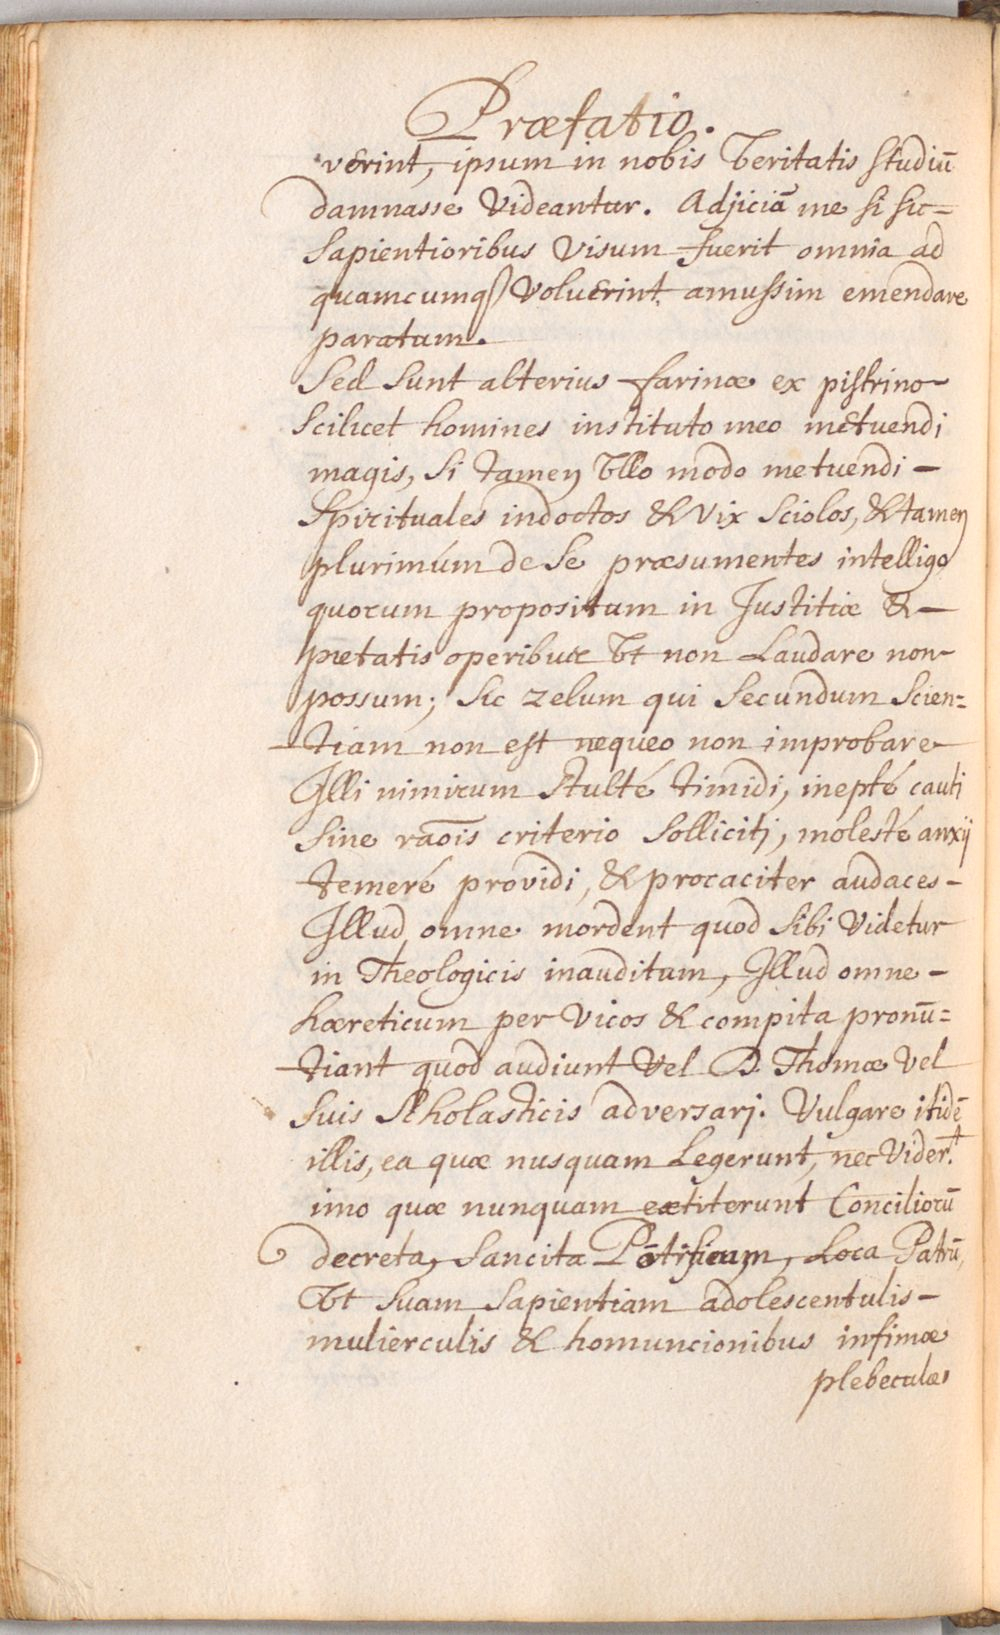 Præfatio.
verint, ipsum in nobis Veritatis studiū
damnasse Videantur. Adjiciā me si sic
Sapientioribus Visum fuerit omnia ad
quamcumq; Voluerint amussim emendare
paratum.
Sed Sunt alterius farinæ ex pistrino
Scilicet homines instituto meo metuendi
magis, Si tamen Vllo modo metuendi
Spirituales indoctos & Vix Sciolos, & tamen
plurimúm de Se præsumentes intelligo
quorum propositum in Justitiæ &
pietatis operibus Vt non Laudare non
possum; Sic zelum qui Secundum Scien=
tiam non est nequeo non improbare
Illi nimirum Stulté timidi, inepté cauti
Sine raōis criterio Solliciti, molesté anxij
temeré providi, & procaciter audaces
Illud omne mordent quod Sibi Videtur
in Theologicis inauditum, Illud omne
hæreticum per Vicos & compita pronū=
tiant quod audiunt Vel D. Thomæ Vel
Suis Scholasticis adversari. Vulgare itidē
illis, ea quæ nusquam Legerunt, nec Vider.t
imo quæ nunquam extiterunt Conciliorū
decreta, Sancita Pōtificum, Loca Patrū,
Vt Suam Sapientiam adolescentulis
mulierculis & homuncionibus infimæ
plebeculæ